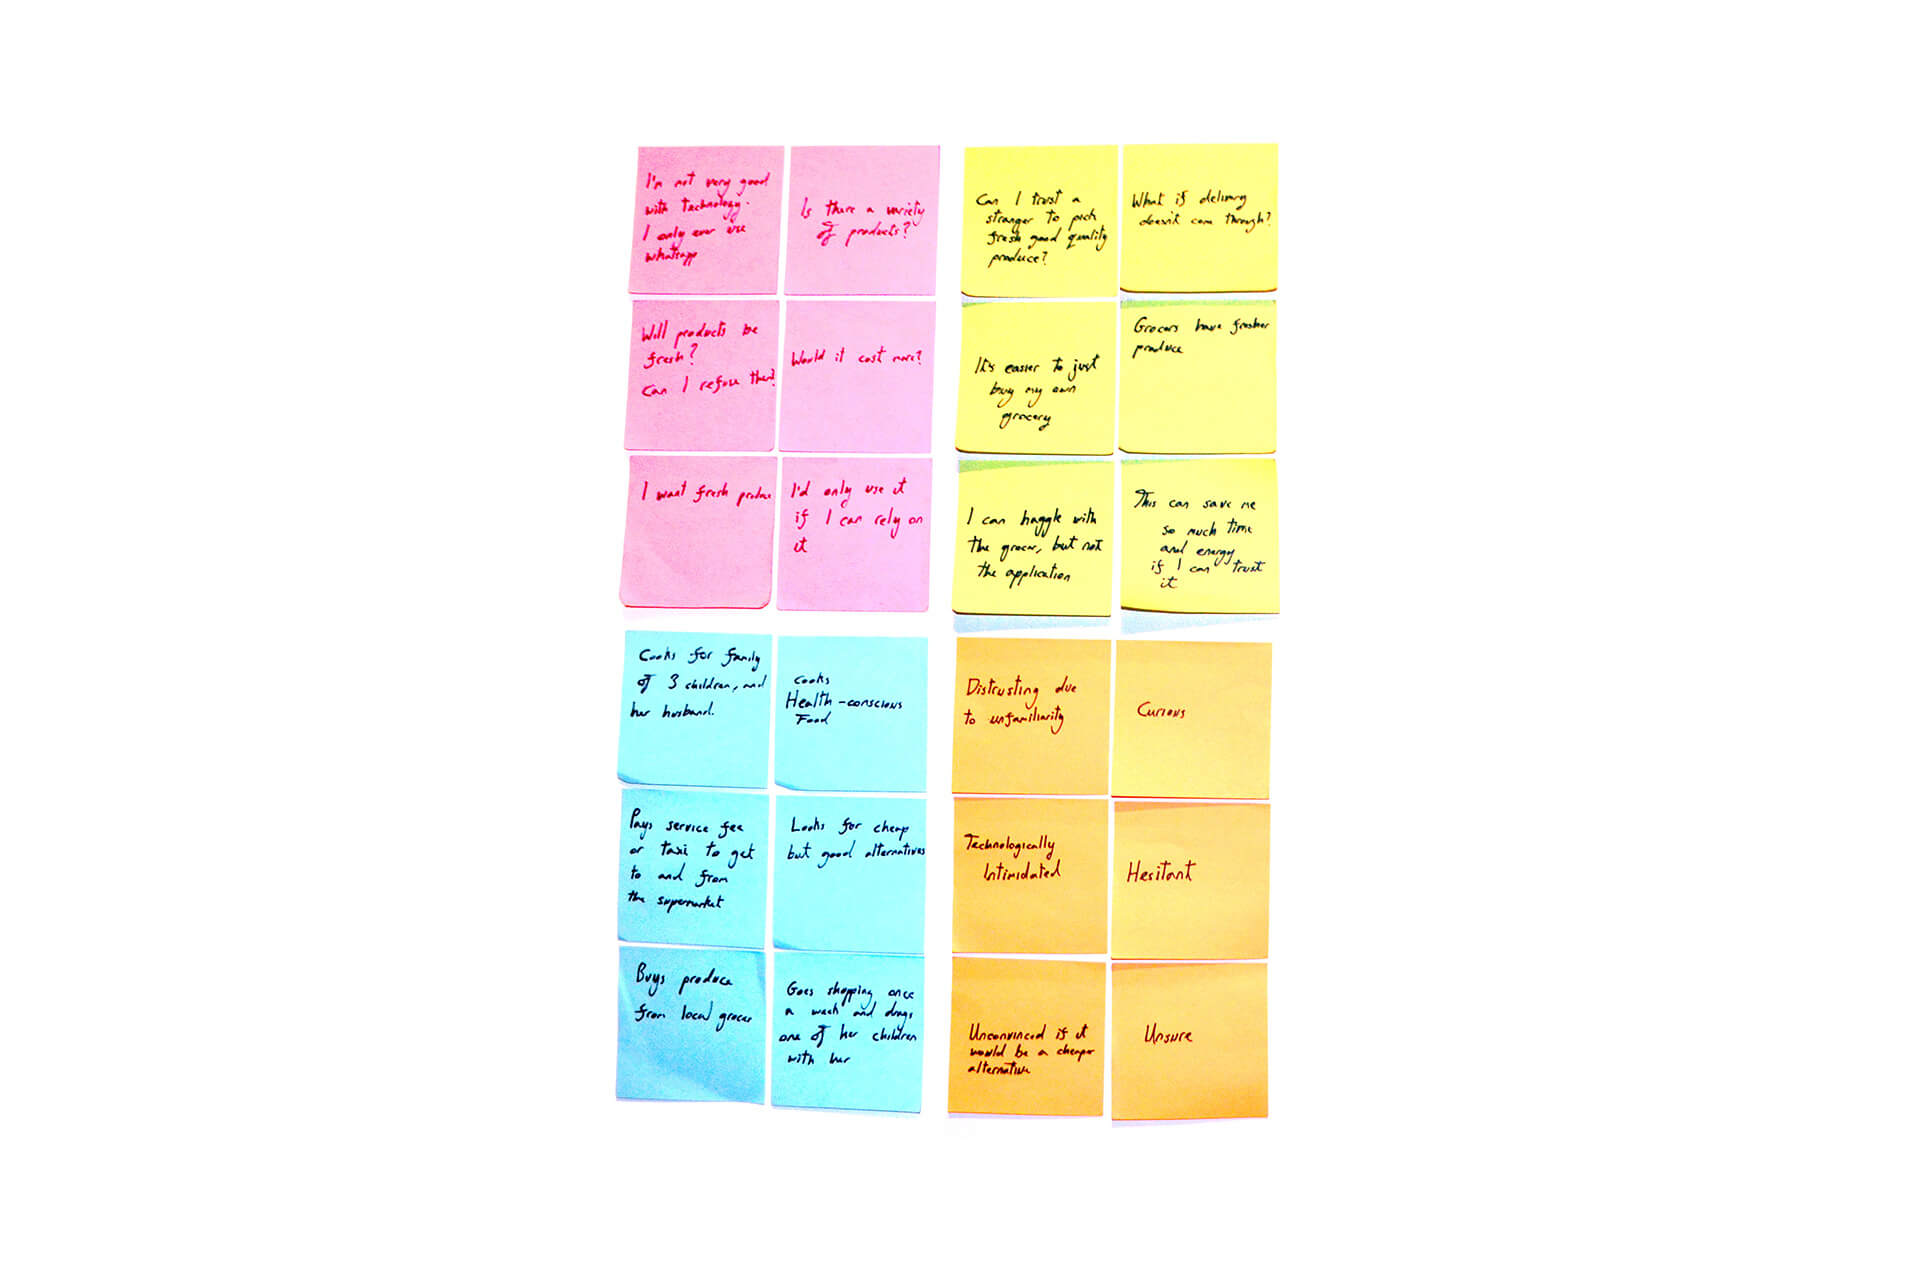 I'm not very good
with technology.
I only ever use
whatsapp
Is there a variety
of products?
Will products be
fresh?
Can I refuse them?
Would it cost more?
I want fresh produce
I'd only use it
if I can rely on
it
Can I trust a
stranger to pick
fresh good quality
produce?
What if delivery
doesn't come through?
It's easier to just
buy my own
grocery
Grocers have fresher
produce
I can haggle with
the grocer, but not
the application
This can save me
so much time
and energy
if I can trust
it
Cooks for family
of 3 children, and
her husband.
Cooks
Health-conscious
Food
Pays service fee
or taxi to get
to and from
the supermarket
Looks for cheap
but good alternatives
Buys produce
from local grocer
Goes shopping once
a week and drags
one of her children
with her
Distrusting due
to unfamiliarity
Curious
Technologically
Intimidated
Hesitant
Unconvinced if it
would be a cheaper
alternative
Unsure